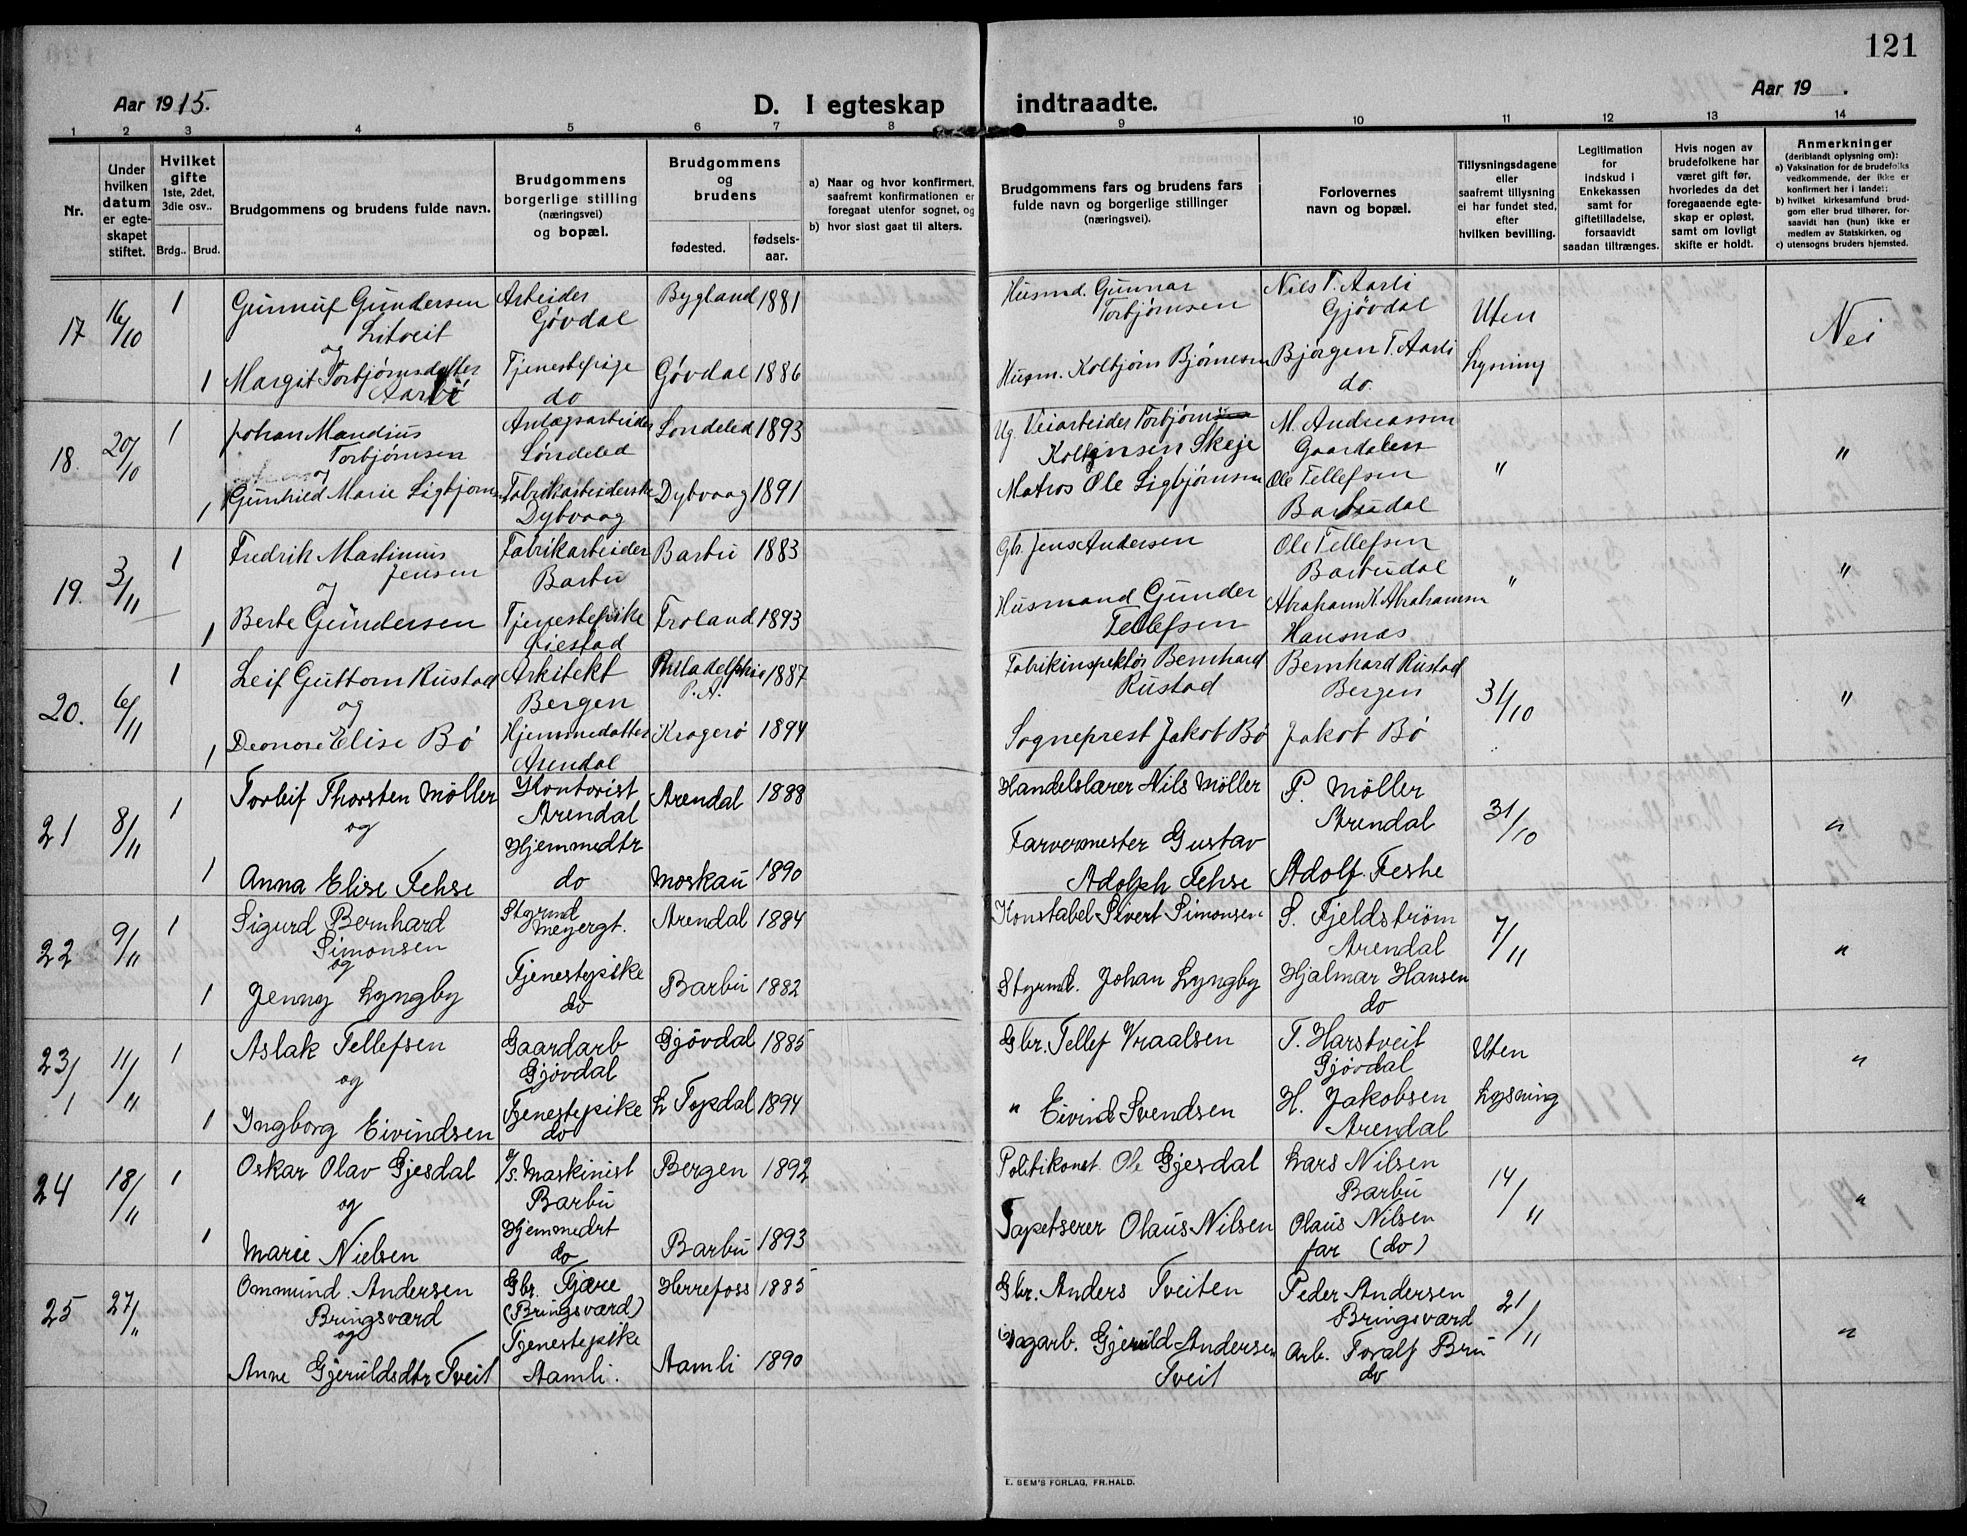 121
Aar 1915.
D. I egteskap indtraadte.
Aar 19 .
1 2 3 4 5 6 7 8 9 10 11 12 13 14
Nr.
Under hvilken datum er egte-skapet stiftet.
Hvilket gifte 1ste, 2det, 3die osv..
Brdg.. Brud.
Brudgommens og brudens fulde navn.
Brudgommens borgerlige stilling (næringsvei) og bopæl.
Brudgommens og brudens
fødested. fødsels-aar.
a) Naar og hvor konfirmert, saafremt konfirmationen er foregaat utenfor sognet, og
b) hvor sidst gaat til alters.
Brudgommens fars og brudens fars fulde navn og borgerlige stillinger (næringsvei).
Forlovernes navn og bopæl.
Tillysningsdagene eller saafremt tillysning ei har fundet sted, efter hvilken bevilling.
Legitimation for indskud i Enkekassen samt for giftetilladelse, forsaavidt saadan tiltrænges.
Hvis nogen av brudefolkene har været gift før, hvorledes da det foregaaende egte-skap er opløst, samt om lovligt skifte er holdt.
Anmerkninger (deriblandt oplysning om):
a) Vaksination for de brudefolks vedkommende, der ikke er konfirmert her i landet;
b) hvilket kirkesamfund brud-gom eller brud tilhører, for-saavidt han (hun) ikke er medlem av Statskirken, og
c) utensogns bruders hjemsted.
17 16/10 1 Gunnuf Gundersen Arbeider Bygland 1881 Husmd. Gunnar Nils T. Aarli Uten Nei
Litveit Gøvdal Torbjørnsen Gjøvdal
og
1 Margit Torbjørnsdatter Tjenestepige Gøvdal 1886 Husm. Kolbjørn Bjørnesen Bjørgen T. Aarli Lysning
do do.
18. 20/10 1 Johan Mandius Anlægsarbeider Søndeled 1893 Ug. Veiarbeider Torbjørn M. Andreassen "
Torbjørnsen Søndeled Skeje Gaardalen
og
1 Gunhild Marie Sigbjørnsen Fabrikarbeiderske Dybvaag 1891 Matros Ole Sigbjørnsen Ole Tellefsen "
Dybvaag Barbudal
19. 3/11 1 Fredrik Martinius Fabrikarbeider Barbu 1883 Gbr. Jens Andersen Ole Tellefsen "
Jensen Barbu Barbudal
og
1 Berte Gundersen Tjenestepike Froland 1893 Husmand Gunder Abraham K. Abrahamsen "
Øiestad Tellefsen
20. 6/11 1 Leif Guttorm Rustad Arkitekt Philadelphia 1887 Fabrikinspektør Bernhard Bernhard Rustad 31/10 "
og Bergen Rustad Bergen
1 Elise Bø Hjemmedatter Kragerø 1894 Sogneprest Jakob Bø Jakob Bø
Arendal
21 8/11 1 Torleif Thorsten Møller Kontorist Arendal 1888 Handelslærer Nils Møller P. Møller 31/10 "
og Arendal Arendal
Hjemmedtr Farvermester Gustav
1 Anna Elise Fehse do Moskau 1890 Adolph Fehse Adolf Feshe
22 9/11 1 Sigurd Bernhard Styrmd Arendal 1884 Konstabel Sivert Simonsen S. Fjeldstrøm 7/11 "
Simonsen Arendal
og
1 Jenny Lyngby Tjenestepike Barbu 1882 Styrmd. Johan Lyngby Hjalmar Hansen
do do
23/1 11/11 1 Aslak Tellefsen Gaardarb Gjøvdal 1885 Gbr. Tellef Vraalsen T. Harstveit Uten "
og Gjøvdal Gjøvdal
1 Ingborg Eivindsen Tjenestepike L Topdal 1894 " Eivind Svendsen H. Jakobsen Lysning
do Arendal
24 18/11 1 Oskar Olav Gjesdal D/S. Maskinist Bergen 1892 Politikonst. Ole Gjesdal Lars Nilsen 14/11 "
og Barbu Barbu
1 Marie Nielsen Hjemmedrt Barbu 1893 Tapetserer Olaus Nilsen Olaus Nilsen
do far (do)
25 27/" Ommund Andersen Gbr. Fjære Herrefoss 1885 Gbr. Anders Tveiten Peder Andersen 21/11 "
Bringsværd (Bringsværd) Bringsværd
og
Anne Gjeruldsdtr Tveit Tjenestepike Aamli 1890 Sagarb. Gjeruld Andersen Arb. Toralf Bru
Aamli. Tveit do
E. SEM'S FORLAG, FR.HALD.